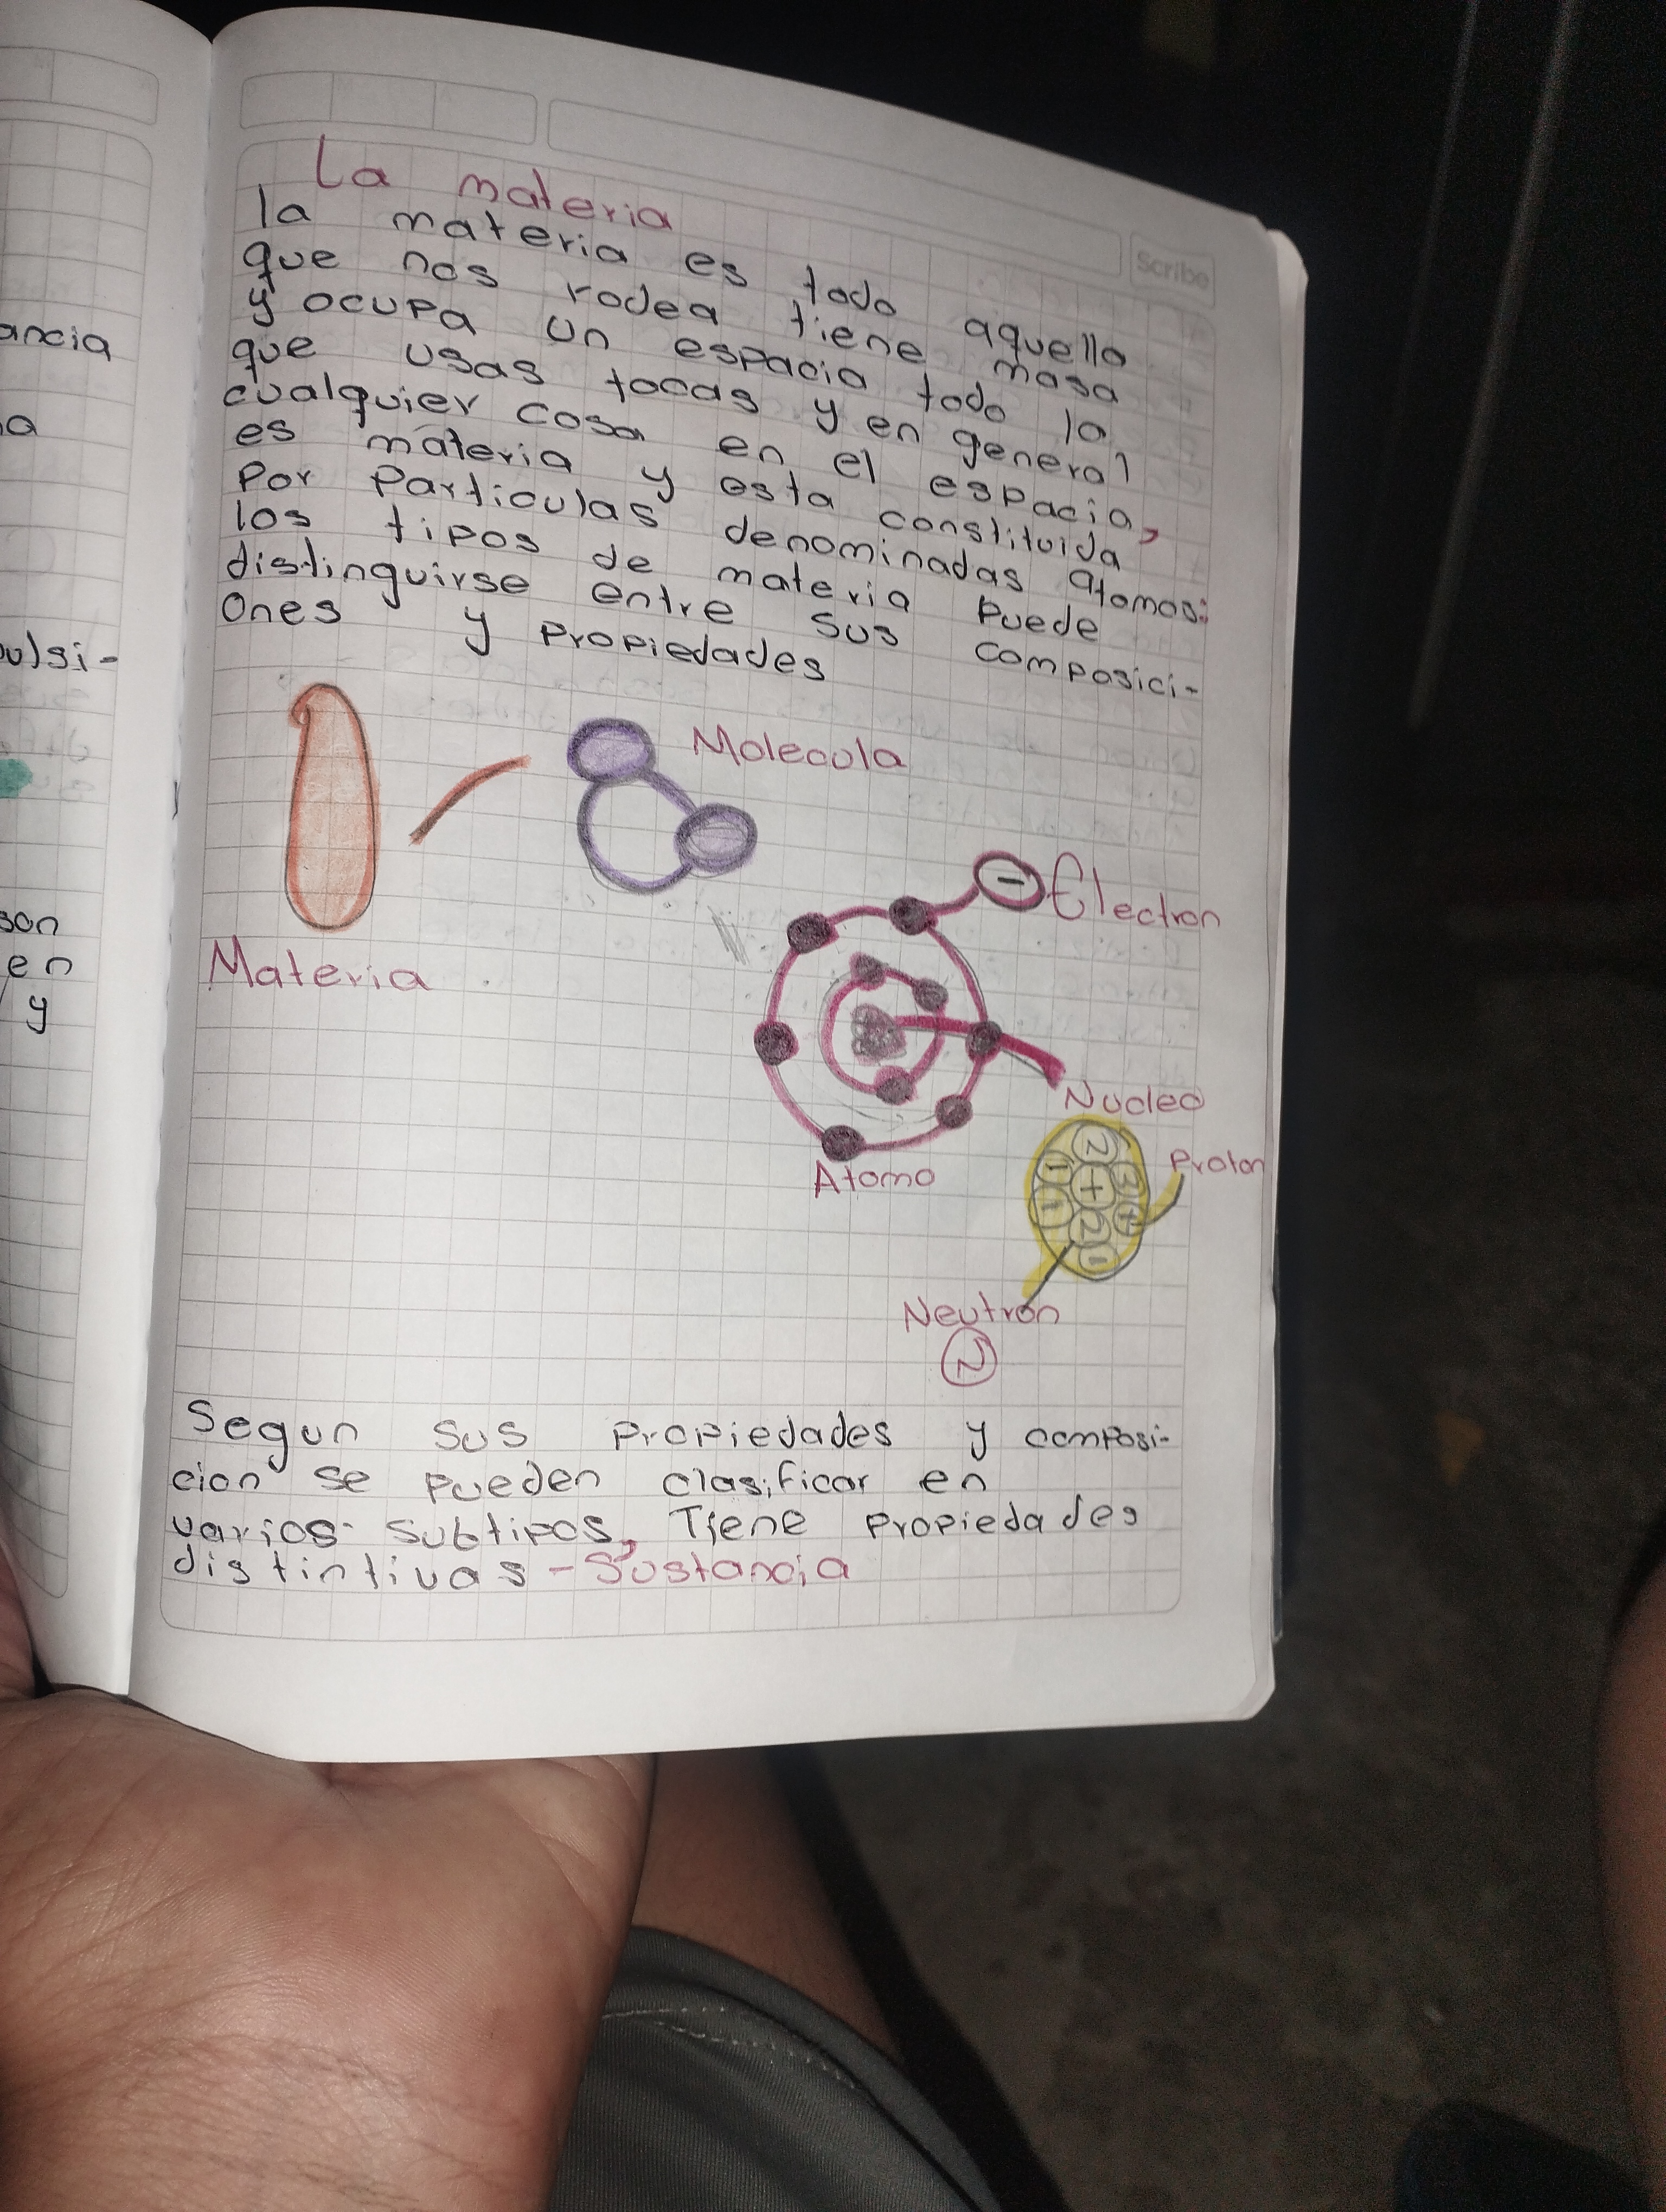 La materia
Scribe
la materia es todo aquello
que nos rodea tiene masa
y ocupa un espacio todo lo
que usas tocas y en general
cualquier cosa en el espacio,
es materia y esta constituida
Por Particulas denominadas atomos:
los tipos de materia Puede
distinguirse entre sus composici-
ones y Propiedades
Molecula
- Electron
Materia
Nucleo
Proton
Atomo
Neutron
N
Segun sus Propiedades y composi-
cion se pueden clasificar en
varios subtipos, Tiene Propiedades
distintivas - Sustancia
ancia
a
ulsi-
son
en
y